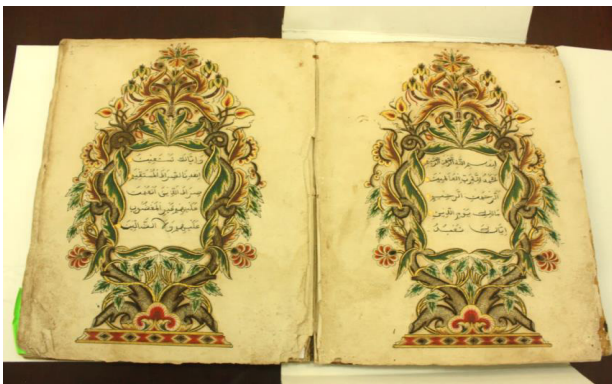 بسم الله الرحمن الرحيم
الحمد لله رب العالمين
الرحمن الرحيم
مالك يوم الدين
إياك نعبد
وإياك نستعين
اهدنا الصراط المستقيم
صراط الذين أنعمت
عليهم غير المغضوب
عليهم ولا الضالين